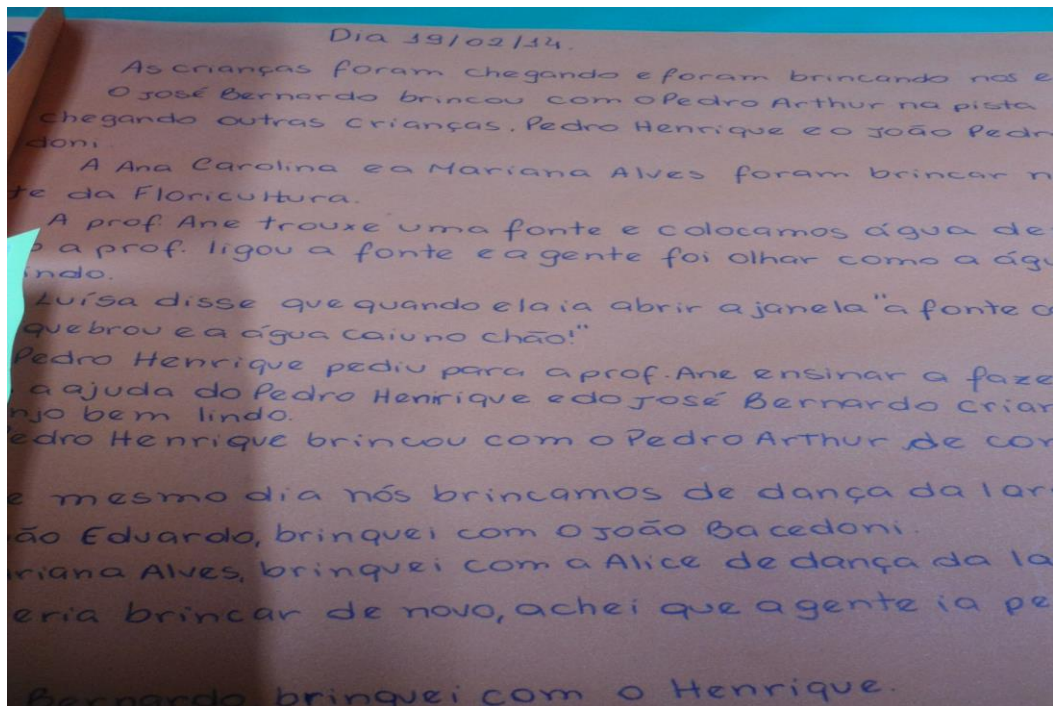 Dia 19/02/14.
As crianças foram chegando e foram brincando nos e
O José Bernardo brincou com o Pedro Arthur na pista
chegando outras crianças. Pedro Henrique e o João Pedr
doni.
A Ana Carolina e a Mariana Alves foram brincar n
te da Floricultura.
A prof. Ane trouxe uma fonte e colocamos água de
a prof. ligou a fonte e a gente foi olhar como a águ
indo.
Luísa disse que quando ela ia abrir a janela "a fonte c
quebrou e a água caiu no chão!"
Pedro Henrique pediu para a prof. Ane ensinar a faze
a ajuda do Pedro Henrique e do José Bernardo criar
njo bem lindo.
edro Henrique brincou com o Pedro Arthur de cor
e mesmo dia nós brincamos de dança da lar
ão Eduardo, brinquei com o João Bacedoni.
riana Alves, brinquei com a Alice de dança da la
eria brincar de novo, achei que a gente ia pe
Bernardo brinquei com o Henrique.